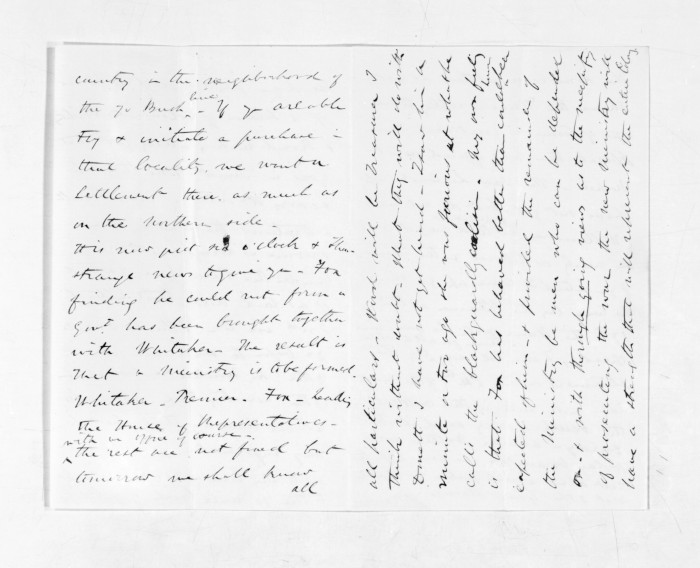 country in the neighborhood of
the 70 Bush line - If you are able
try & initiate a purchase in
that locality, we want a
Settlement there, as much as
on the Northern side -
It is now just six o'clock & I have
strange news to give you - Fox
finding he could not form a
Govt. has been brought together
with Whitaker - The result is
that a Ministry is to be formed.
Whitaker - Premier - Fox - leading
the House of Representatives -
with an of course -
the rest are not fixed but
tomorrow we shall know
all
all particulars - Wood will be Treasurer I
think without doubt - What they will do with
Domett I have not yet heard - I saw him a
minute or two ago she was furious at what she
calls the blackguardly - My own feeling
is that Fox has behaved better than could have been
expected of him - & provided the remainder of
the Ministry be men who can be depended
on - & with thorough going views as to the necessity
of prosecuting the war the new Ministry will
have a strength that will represent the entire